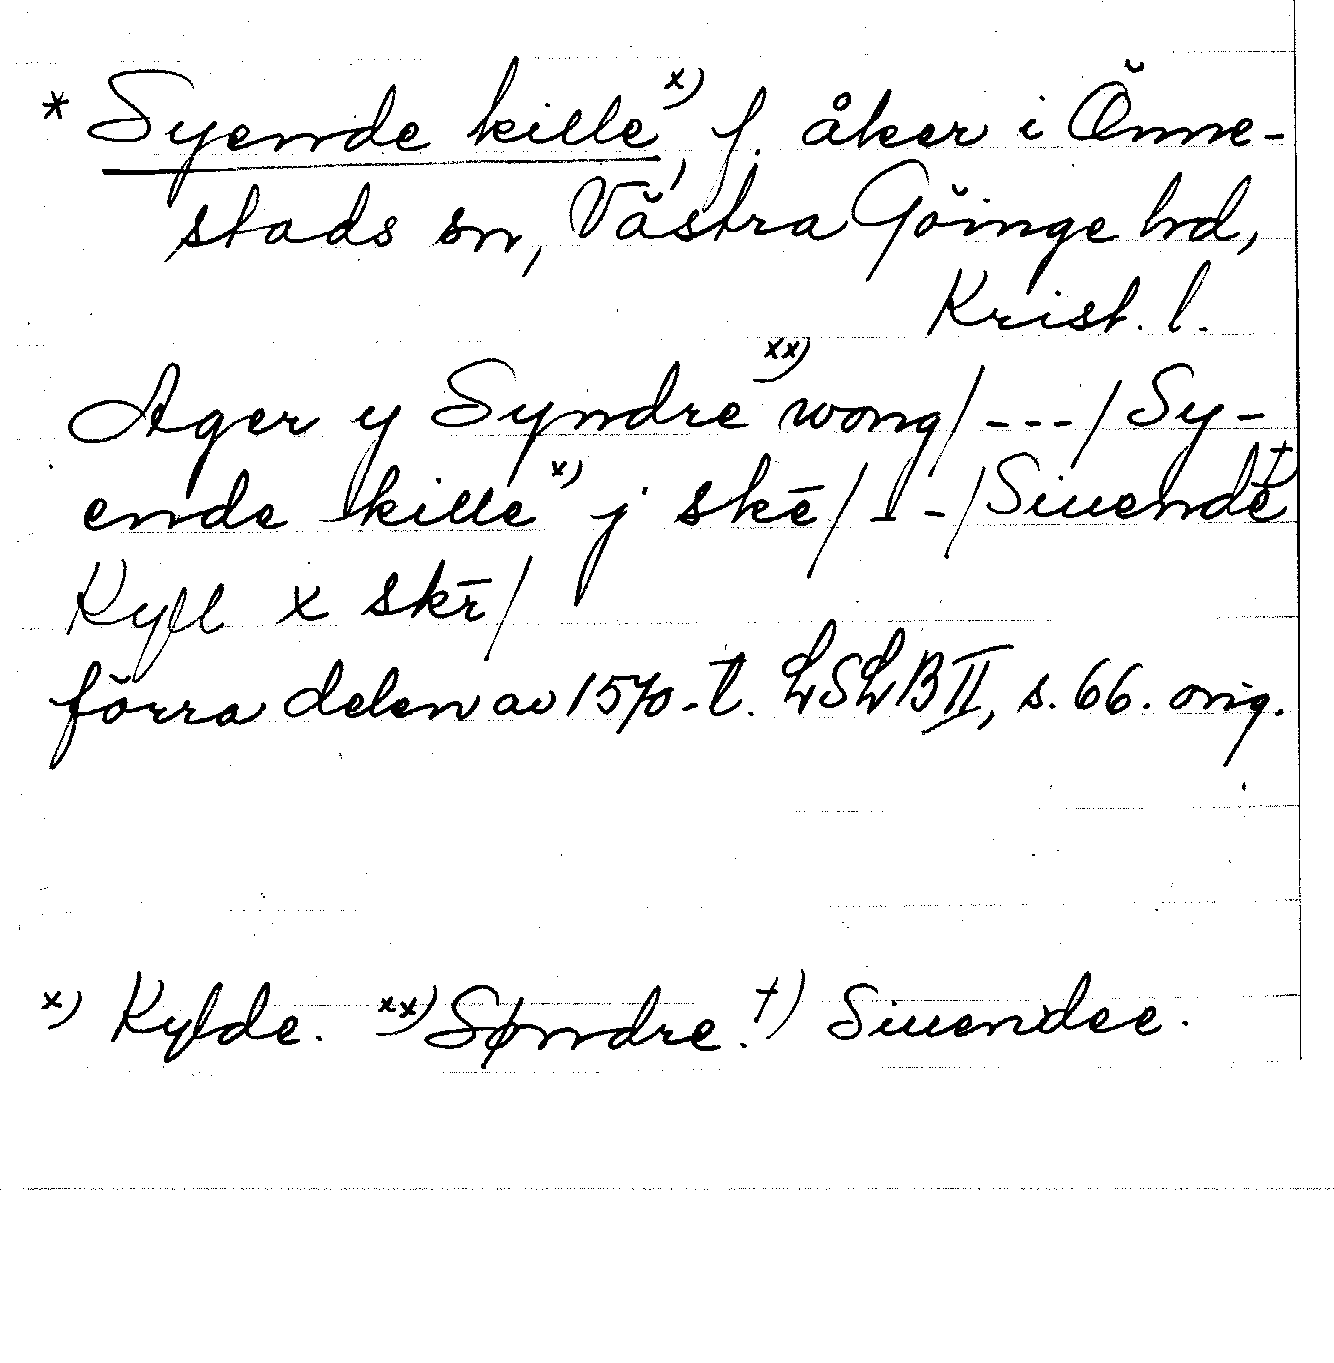 * Syende kille x), f. åker i Önne-
stads sn, Västra Göinge hd,
Krist. l.
Ager y Syndre xx) wong/---/Sy-
ende kille x) j skē/---/Siuende †)
Kyll x skr̄/
förra delen av 1570-t. LSLB II, s. 66. orig.
x) Kylde. xx) Søndre. †) Siuendee.